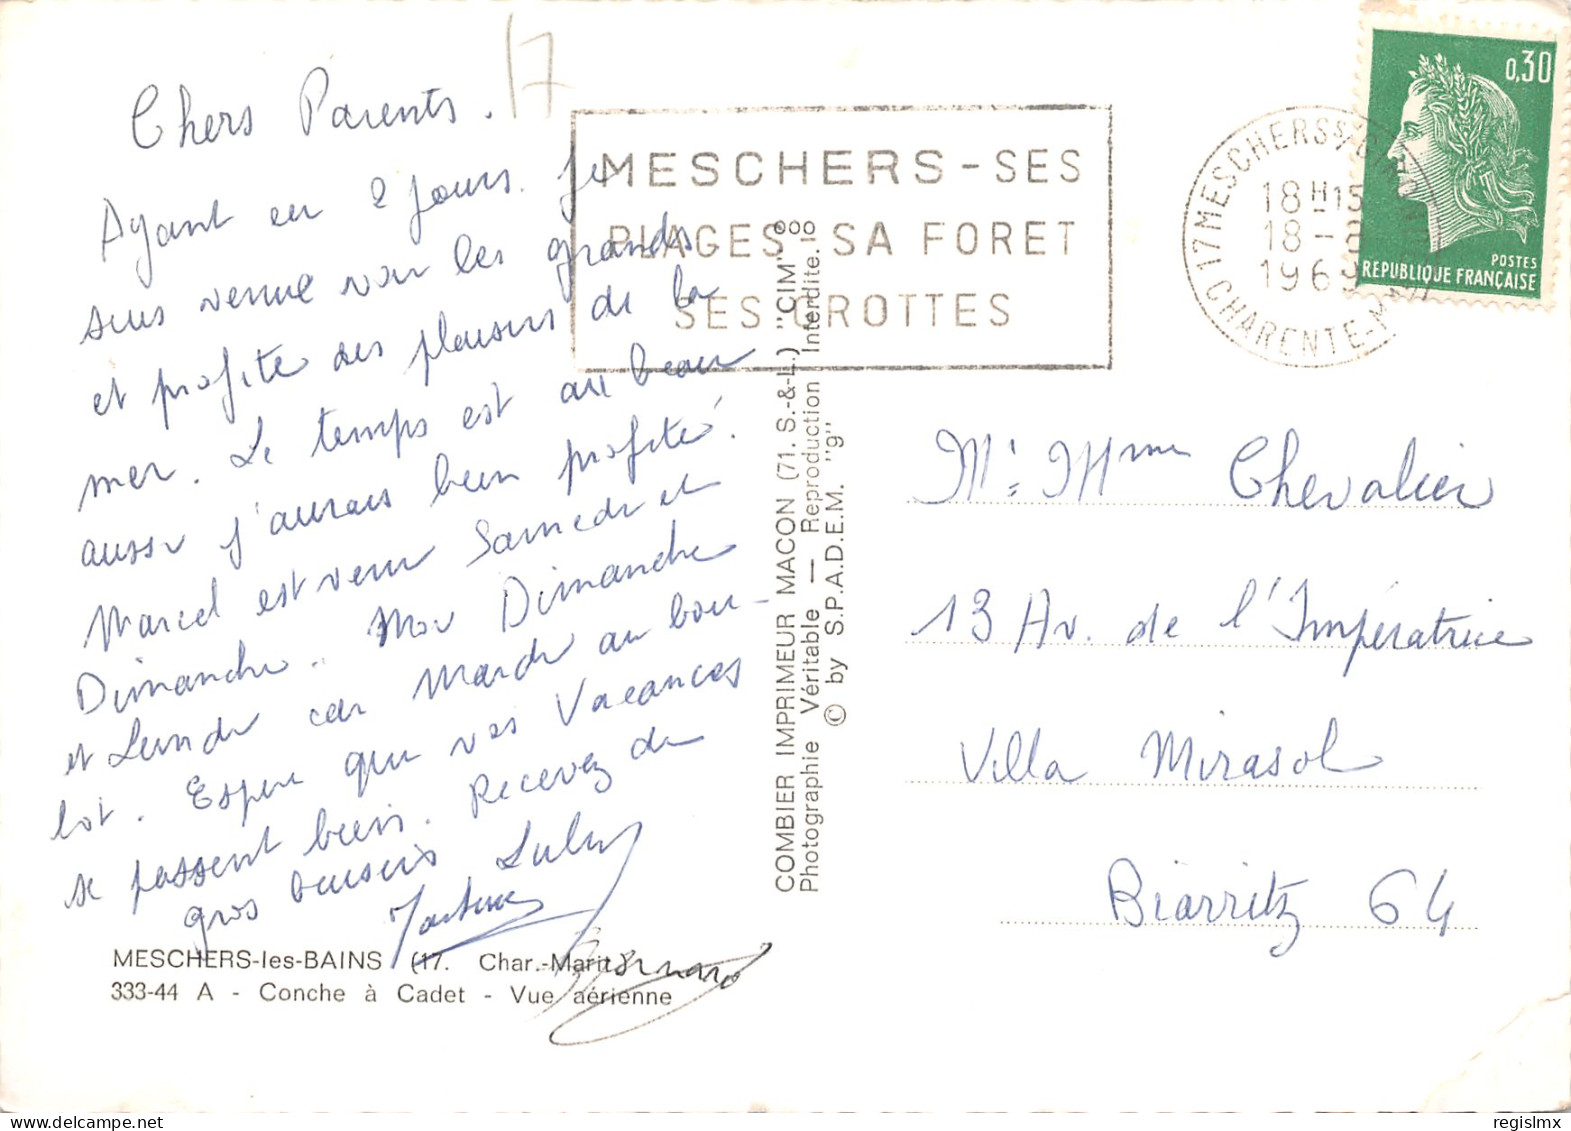 17
Chers Parents.
Ayant eu 2 jours. Je
suis venue voir les grandes
et profite des plaisirs de la
mer. Le temps est au beau
aussi j'aurais bien profité.
Marcel est venu Samedi et
Dimanche. Moi Dimanche
et Lundi car Mardi au bou-
lot. Espère que vos Vacances
se passent bien. Recevez de
gros baisers
MESCHERS-les-BAINS (17. Char.-Marit.)
333-44 A - Conche à Cadet - Vue aérienne
COMBIER IMPRIMEUR MACON (71. S.-&-L.) "CIM"
Photographie Véritable — Reproduction Interdite.
© by S.P.A.D.E.M. "9"
MESCHERS - SES
PLAGES - SA FORET
SES GROTTES
17 MESCHERS S/ GIRONDE
18H15
18 - 8
1969
CHARENTE-MME
0,30
POSTES
REPUBLIQUE FRANÇAISE
Mr. Mme Chevalier
13 Av. de l'Impératrice
Villa Mirasol
Biarritz 64
regislmx